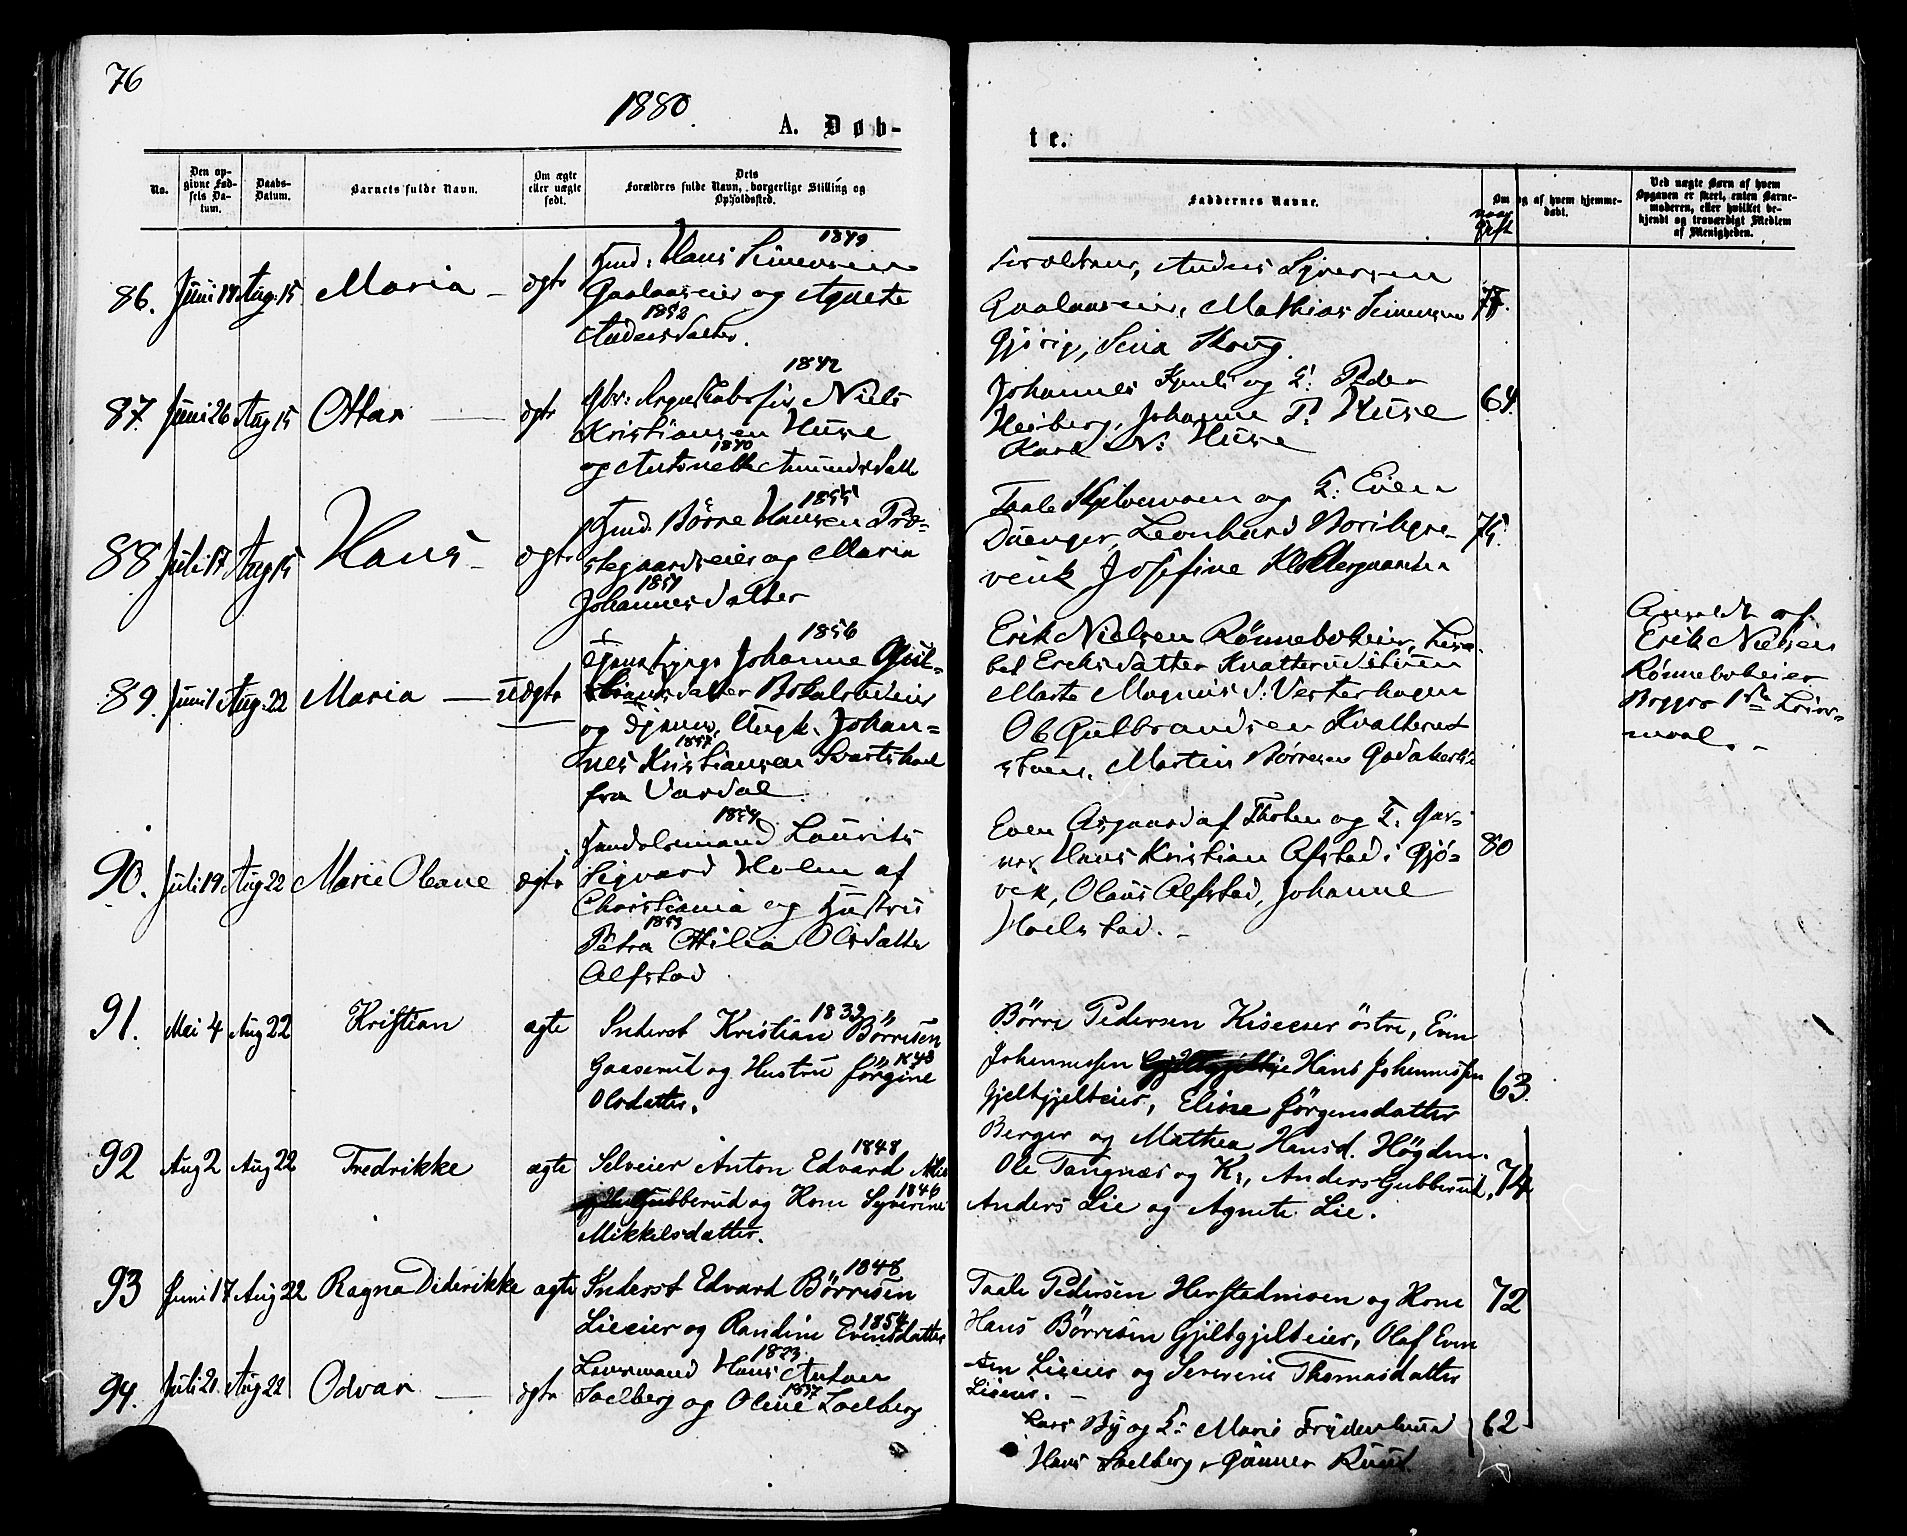 76
1880.
A. Døb-
te.
No.
Den op-
givne Fød-
sels Da-
tum.
Daabs-
Datum.
Barnets fulde Navn.
Om ægte
eller uægte
født.
Dets
Forældres fulde Navn, borgerlige Stilling og
Opholdssted.
Faddernes Navne.
Om og af hvem hjemme-
døbt.
Ved uægte Børn af hvem
Opgaven er skeet, enten Barne-
moderen, eller hvilket be-
kjendt og troværdigt Medlem
af Menigheden.
naar
Gift
86. Juni 18 Aug. 15 Maria ægte
Hmd. Hans Simensen 1849
Gaalaaseier og Agnete
1852
Andersdatter.
Forældrene, Anders Syversen
Gaalaaseier, Mathias Simensen
Gjøvig, Sina Skoug.
77.
87 Juni 26 Aug 15 Ottar ægte
1842
Gbr: Niels
Kristiansen Huse
1840
og Antonette Amundsdatt
Johannes og F: Peder
Heiberg, Johanne P. Huse
Kard N. Huse
64.
88 Juli 17 Aug 15 Hans ægte
1855
Hmd. Børre Hansen Præ-
stegaardseier og Maria
1851
Johannesdatter
Taale Skjelvemoen og F: Even
Duenger, Leonhard
Josefine
75.
89. Juni 1 Aug. 22 Maria uægte
1856
Tjenestpige Johanne Gul-
brandsdatter
og Tjener, Ungk. Johan-
1857
nes Kristiansen
fra Vardal.
Erik Nielsen Rønneboeier, Lisa-
bet Eriksdatter
Marte Magnusd: Vesterhagen
Ole Gulbrandsen
Martin Børresen
Anmeldt af
Erik Nielsen
Rønneboeier
90. Juli 19 Aug 22 Marie Oleane ægte
1854
Handelsmand Laurits
Sigvard Holm af
Christiania og Hustru
1853
Petra Ottilia Olsdatter
Alfstad
Even Asgaard af Thoten og F. Gar-
ver Hans Kristian Alfstad i Gjø-
vik, Olaus Alfstad, Johanne
Hoelstad.
80
91. Mei 4 Aug 22 Kristian ægte
1832
Inderst Kristian Børresen
1843
Gaaserud og Hustru Jørgine
Olsdatter.
Børre Pedersen Kiseeier østre, Even
Johannessen Hans Johannessen
Gjeltgjelteier, Eline Jørgensdatter
Berger og Mathea Hansd. Høgden.
63.
92 Aug 2 Aug 22 Fredrikke ægte
1848
Selveier Anton Edvard
1846
Gubberud og Kone Syverine
Mikkelsdatter.
Ole Tangnæs og K:, Anders Gubberud,
Anders Lie og Agnete Lie.
74
93 Juni 17 Aug 22 Ragna Diderikke ægte
1848
Inderst Edvard Børresen
1854
Lieeier og Randine Evensdatter
Taale Pedersen Herstadmoen og Kone
Hans Børresen Gjeltgjelteier, Olaf Even
sen Lieeier og Severine Thomasdatter
Lieeier.
72
94. Juli 21. Aug 22 Odvar ægte
1823
Lensmand Hans Anton
1837
Soelberg og Oline Soelberg
Lars By og F: Marie Frydenlund
Hans Soelberg, Gunner Ruud.
62